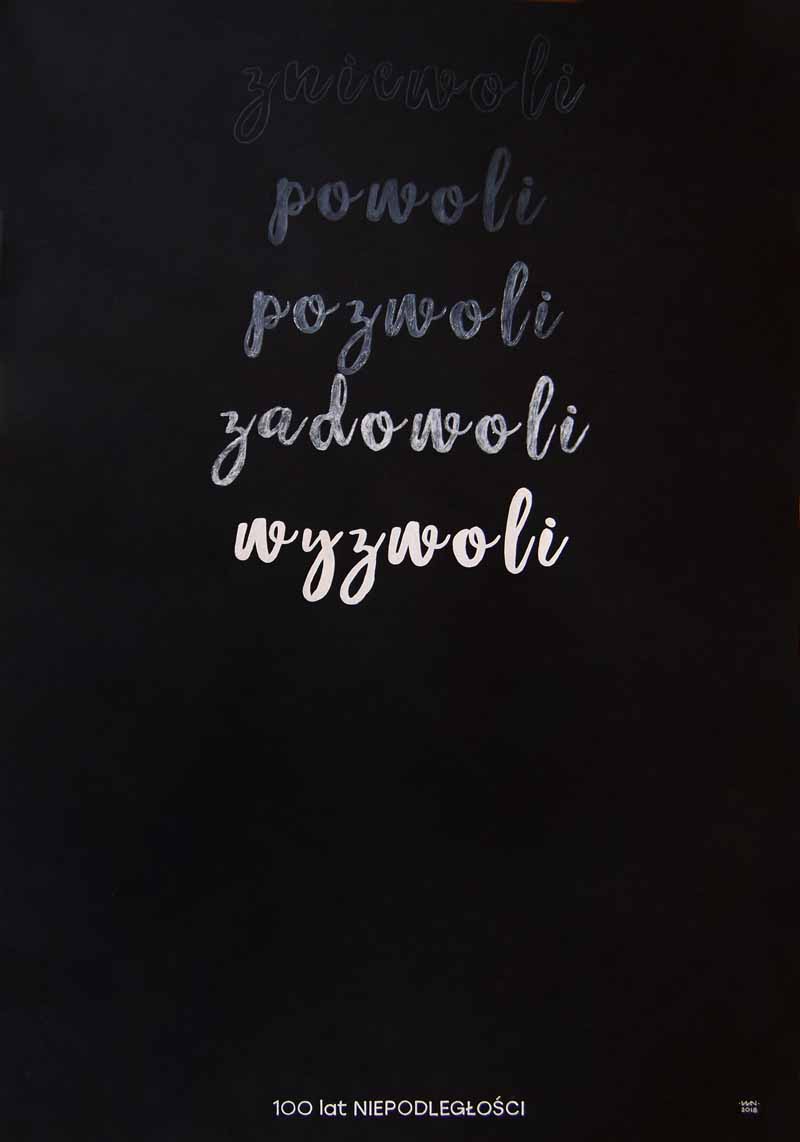 zniewoli
powoli
pozwoli
zadowoli
wyzwoli
100 lat NIEPODLEGŁOŚCI
2018